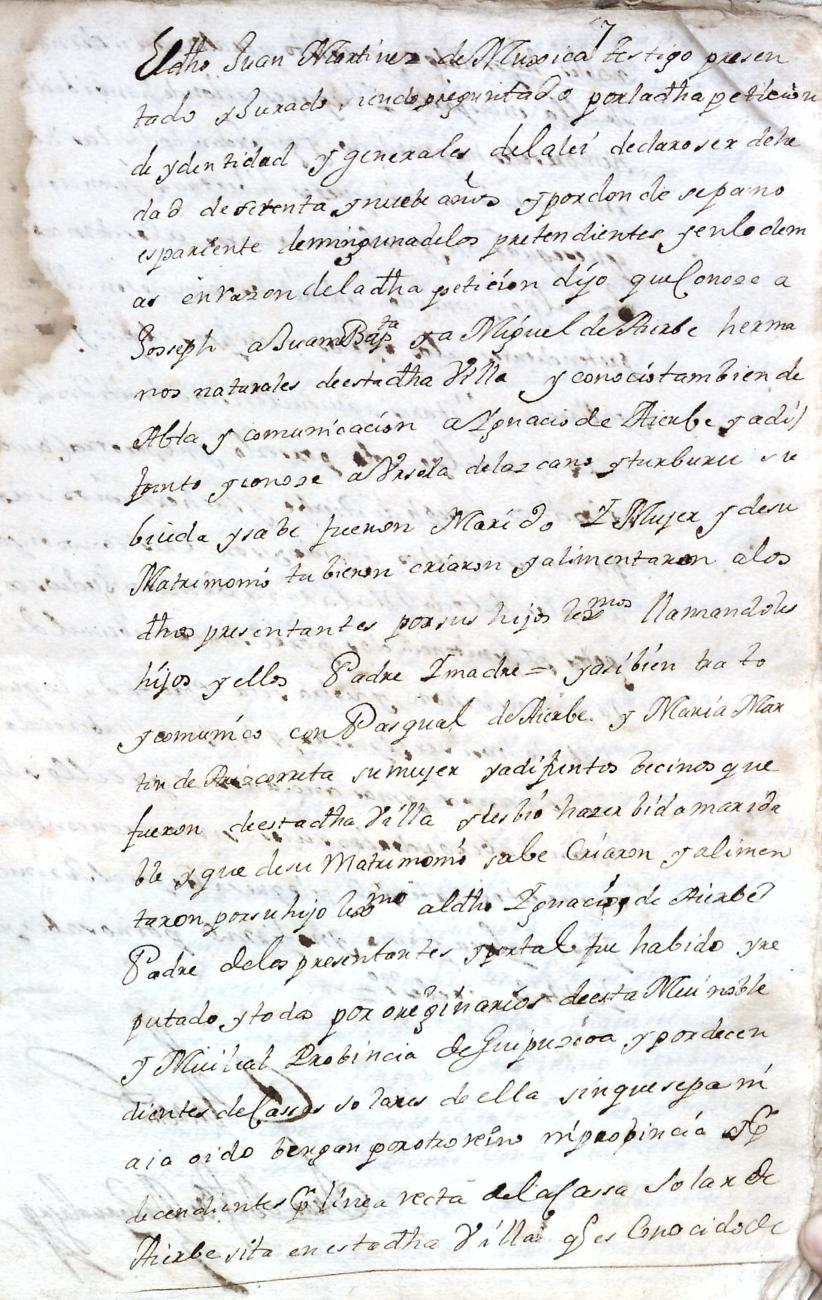 7
El dho Juan Martinez de Muxica testigo presen
tado y Jurado siendo preguntado por la dha peticion
de ydentidad y generales de la lei declaro ser de he
dad de setenta y nuebe años y por donde sepa no
es pariente de ninguna de los pretendientes y en lo dem
as en razon de la dha peticion dijo que Conoze a
Joseph a Juan Bapta y a Miguel de Aierbe herma
nos naturales de esta dha Villa y conocio tambien de
Abla y comunicacion a Ygnacio de Aierbe ya di
funto y conoze a Ursela de lazcano yturburu su
biuda y sabe fueron Marido Y Mujer y de su
Matrimonio tubieron criaron y alimentaron a los
dhos presentantes por sus hijos lexmos llamandoles
hijos y ellos Padre Y madre = y asi bien trato
y comunico con Pasqual de Aierbe y Maria Mar
tin de Arizcorreta su mujer ya difuntos becinos que
fueron de esta dha Villa y les bio hazer bida marida
ble y que de su Matrimonio sabe Criaron y alimen
taron por su hijo lexmo al dho Ygnacio de Aierbe
Padre de los presentantes y por tal fue habido y re
putado y todos por oreginarios de esta Mui noble
y Mui leal Probincia de Guipuzcoa y por decen
dientes de Cassas solares de ella sin que sepa ni
aia oido bengan por otro reino ni probincia y
decendientes Pr linea recta de la Cassa Solar de
Aierbe sita en esta dha Villa q es Conocido de